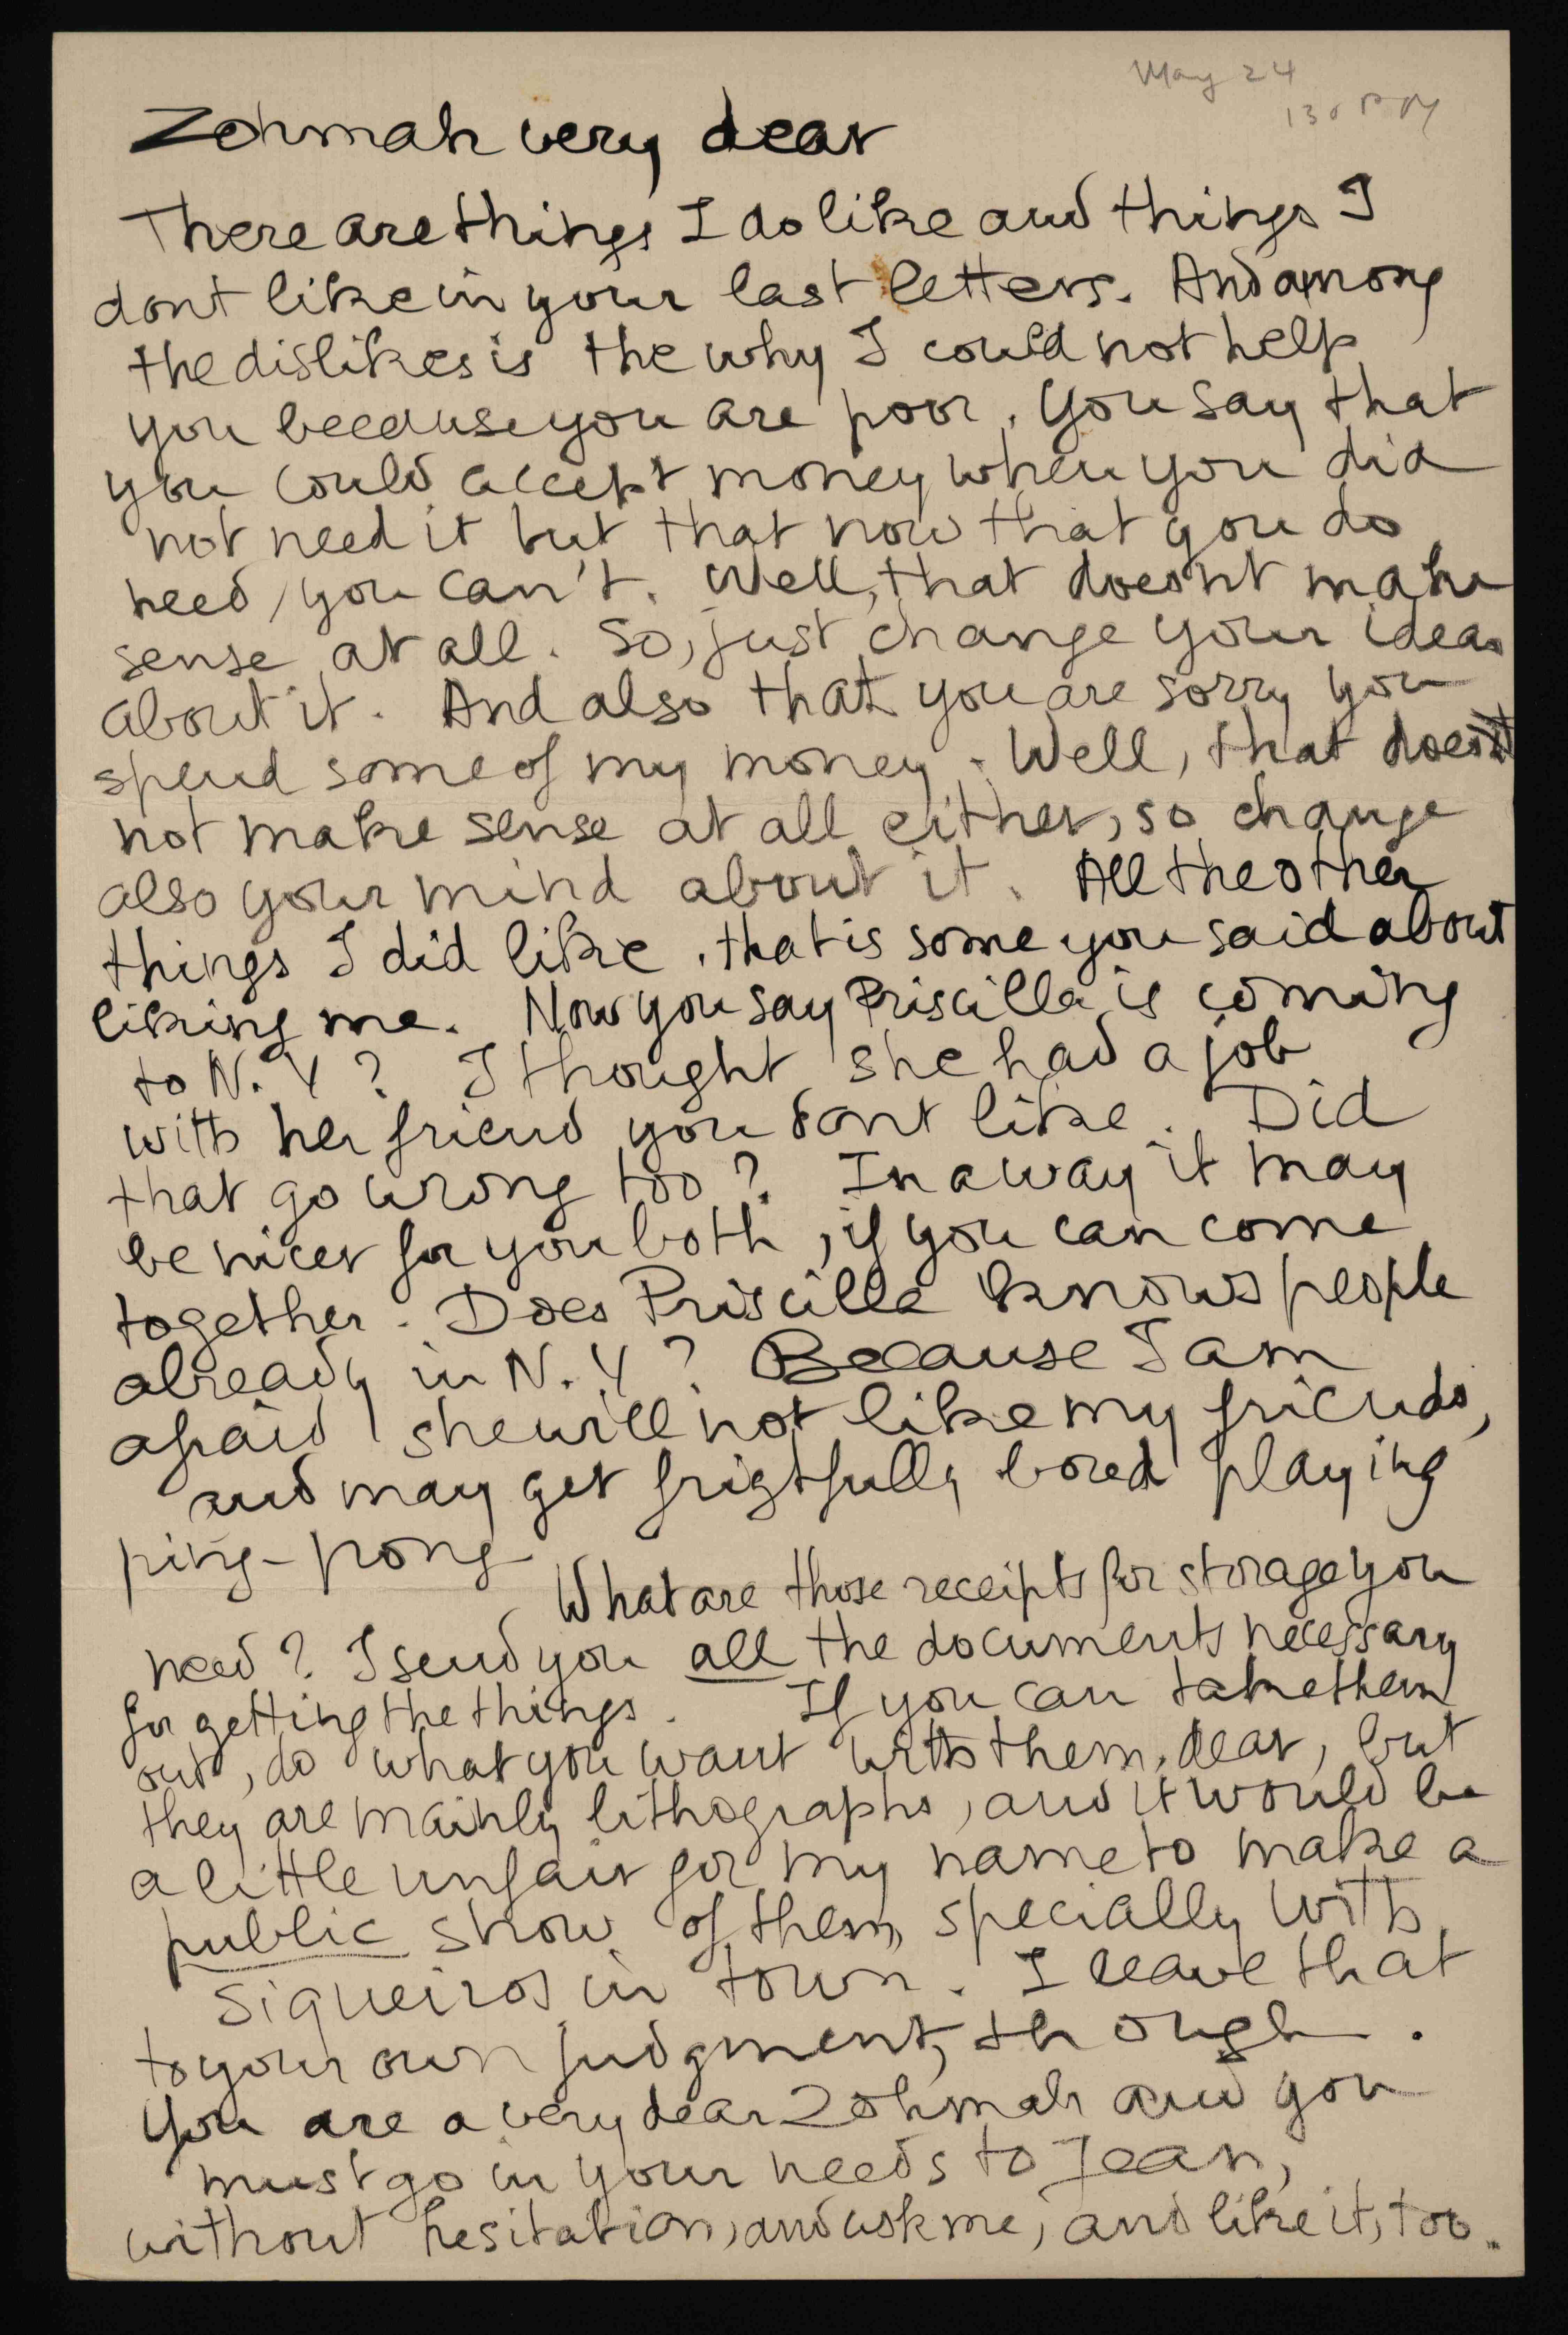 May 24
130 PM
Zohmah very dear
There are things I do like and things I
dont like in your last letters. And among
the dislikes is the why I could not help
you because you are poor. You say that
you could accept money when you did
not need it but that now that you do
need, you can't. Well, that doesnt make
sense at all. So, just change your ideas
about it. And also that you are sorry you
spend some of my money. Well, that does
not make sense at all either, so change
also your mind about it. All the other
things I did like, that is some you said about
liking me. Now you say Priscilla is coming
to N.Y? I thought she had a job
with her friend you dont like. Did
that go wrong too? In a way it may
be nicer for you both, if you can come
together. Does Priscilla knows people
already in N.Y? Because I am
afraid she will not like my friends,
and may get frigtfully bored playing
ping-pong
What are those receipts for storage you
need? I send you all the documents necessary
for getting the things. If you can take them
out, do what you want with them, dear, but
they are mainly lithographs, and it would be
a little unfair for my name to make a
public show of them, specially with
Siqueiros in town. I leave that
to your own judgment, though.
You are a very dear Zohmah and you
must go in your needs to Jean,
without hesitation, and ask me, and like it, too.